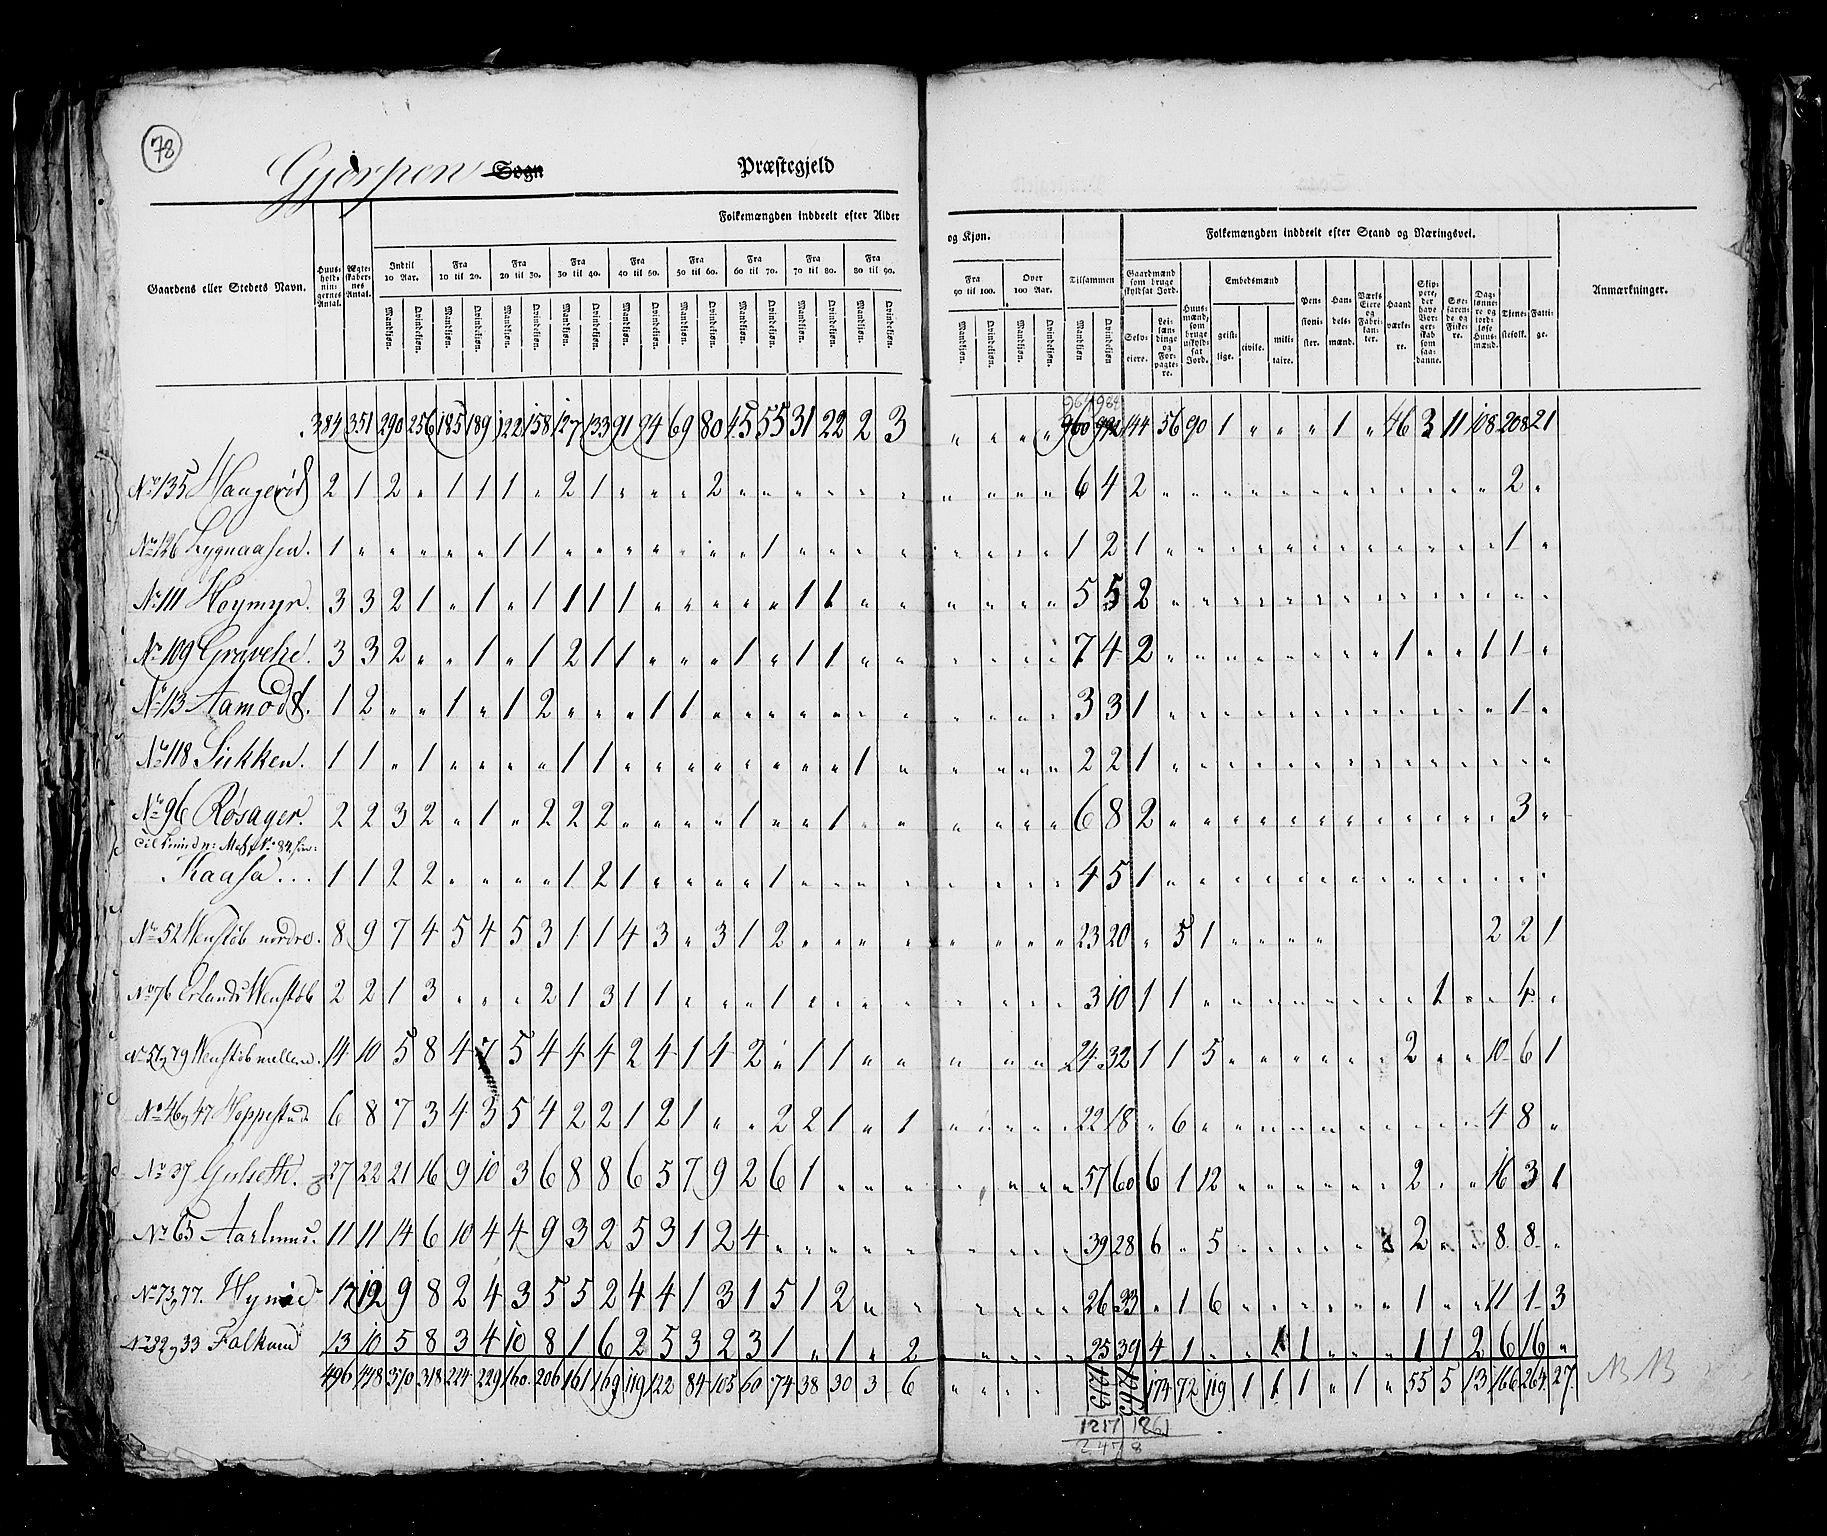 78
Gjerpen Sogn Præstegjeld
Folkemængden inddeelt efter Alder og Kjøn. Folkemængden inddeelt efter Stand og Næringsvei.
Gaardens eller Stedets Navn. Huusholdningernes Antal. Ægteskabernes Antal. Indtil 10 Aar. Fra 10 til 20. Fra 20 til 30. Fra 30 til 40. Fra 40 til 50. Fra 50 til 60. Fra 60 til 70. Fra 70 til 80. Fra 80 til 90. Fra 90 til 100. Over 100 Aar. Tilsammen Gaardmænd som bruge skyldsat Jord. Huusmænd, som bruge uskyldsat Jord. Embedsmænd Pensionister. Handelsmænd. Værks Eiere og Fabrikanter. Haandværkere. Skippere, der have Borgerskab som saadanne. Søefarende og Fiskere. Daglønnere og jordløse Huusmænd. Tjenestefolk. Fattige. Anmærkninger.
Mandkjøn. Qvindekjøn. Mandkjøn. Qvindekjøn. Mandkjøn. Qvindekjøn. Mandkjøn. Qvindekjøn. Mandkjøn. Qvindekjøn. Mandkjøn. Qvindekjøn. Mandkjøn. Qvindekjøn. Mandkjøn. Qvindekjøn. Mandkjøn. Qvindekjøn. Mandkjøn. Qvindekjøn. Mandkjøn. Qvindekjøn. Mandkjøn Qvindekjøn Selveiere. Leilændinge og Forpagtere. geistlige. civile. militaire.
964 984
384 351 290 256 185 189 122 158 127 133 91 94 69 80 45 55 31 22 2 3 " " " " 960 992 144 56 90 1 " " " 1 " 46 3 11 108 208 21
No 135 Haugerød 2 1 2 " 1 1 1 " 2 1 " " " 2 " " " " " " " " " " 6 4 2 " " " " " " " " " " " " 2 "
No 126 Lygnaasen. 1 " " " " " 1 1 " " " " " " " 1 " " " " " " " " 1 2 1 " " " " " " " " " " " " 1 "
No 111 Høymyr. 3 3 2 1 " 1 " 1 1 1 1 " " " " " 1 1 " " " " " " 5 5 2 " " " " " " " " " " " " " "
No 109 3 3 2 " " 1 " 1 2 1 1 " " " 1 " 1 1 " " " " " " 7 4 2 " " " " " " " " 1 " " 1 1 "
No 113 Aamodt. 1 2 " " 1 " 1 2 " " " 1 1 " " " " " " " " " " " 3 3 1 " " " " " " " " " " " " 1 "
No 118 Siikken. 1 1 " 1 " " " " 1 1 " " " " " " " " 1 " " " " " 2 2 1 " " " " " " " " " " " " " "
No 96 Røsager. 2 2 3 2 " 1 " 2 2 2 " " " " 1 " " 1 " " " " " " 6 8 2 " " " " " " " " " " " " 3 "
No 84
Kaasa... 1 1 2 2 " " " " 1 2 1 " " " " 1 " " " " " " " " 4 5 1 " " " " " " " " " " " " " "
No 52 Wenstøb nordre. 8 9 7 4 5 4 5 3 1 1 4 3 " 3 1 2 " " " " " " " " 23 20 " 5 1 " " " " 2 2 1
No 76 Erlands Wenstøb 2 2 1 3 " " " 2 1 3 1 1 " " " 1 " " " " " " " " 3 10 1 1 " " " " " " " " 1 " " 4 "
No 51, 79 Wenstøb mellem. 14 10 5 8 4 7 5 4 4 4 2 4 1 4 2 " 1 1 " " " " " " 24 32 1 1 5 " " " " " " 2 " " 10 6 1
No 46, 47 Hoppestad 6 8 7 3 4 3 5 4 2 2 1 2 1 " " 2 2 1 " 1 " " " " 22 18 " 6 " " " " " " " " " " 4 8 "
No 37 Gulseth. 27 22 21 16 9 10 3 6 8 8 6 5 7 9 2 6 1 " " " " " " " 57 60 6 1 12 " " " " " " 2 " " 16 3 1
No 65 Aarhuus. 11 11 14 6 10 4 4 9 3 2 5 3 1 2 4 " " " " " " " " " 39 28 6 " 5 " " " " " " 2 " " 8 8 "
No 73, 77. Hynie 17 12 9 8 2 4 3 5 5 2 4 4 1 3 1 5 1 2 " " " " " " 26 33 " 1 6 " " " " " " 1 " " 11 1 3
No 32, 33 Falkum 13 10 5 8 3 4 10 8 1 6 2 5 3 2 3 1 " 1 " 2 " " " " 25 39 4 1 " " " 1 1 " " 1 1 2 6 16 "
496 448 370 318 224 229 160 206 161 169 119 122 84 105 60 74 38 30 3 6 " " " " 1213 1263 174 72 119 1 1 1 " 1 " 55 5 13 166 264 27.
1217 1261
2478